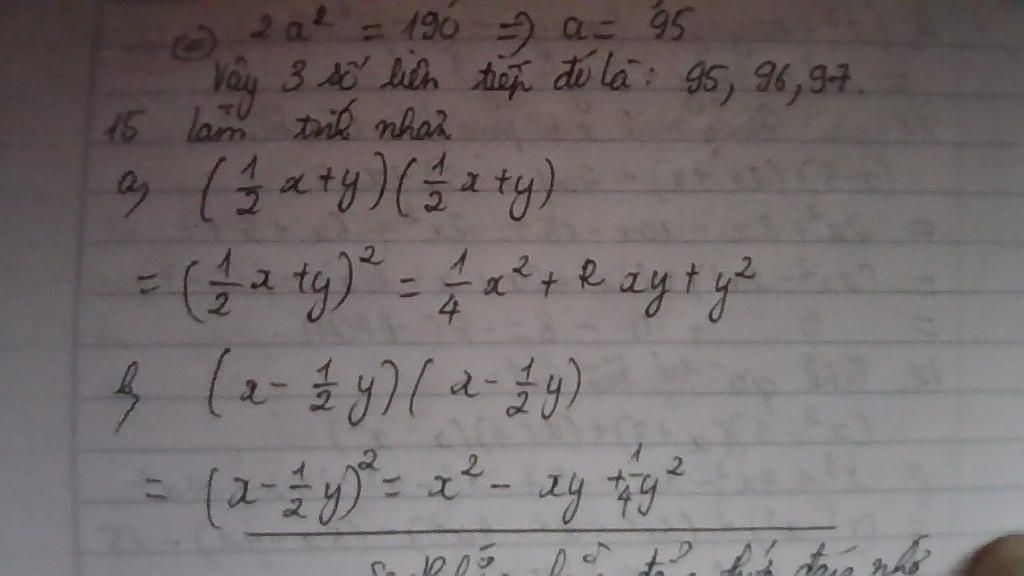 (=) 2a² = 190 => a = 95
Vậy 3 số liên tiếp đó là: 95, 96, 97.
15 làm tính nhân
a, (1/2 x + y)(1/2 x + y)
= (1/2 x + y)² = 1/4 x² + xy + y²
b, (x - 1/2 y)(x - 1/2 y)
= (x - 1/2 y)² = x² - xy + 1/4 y²